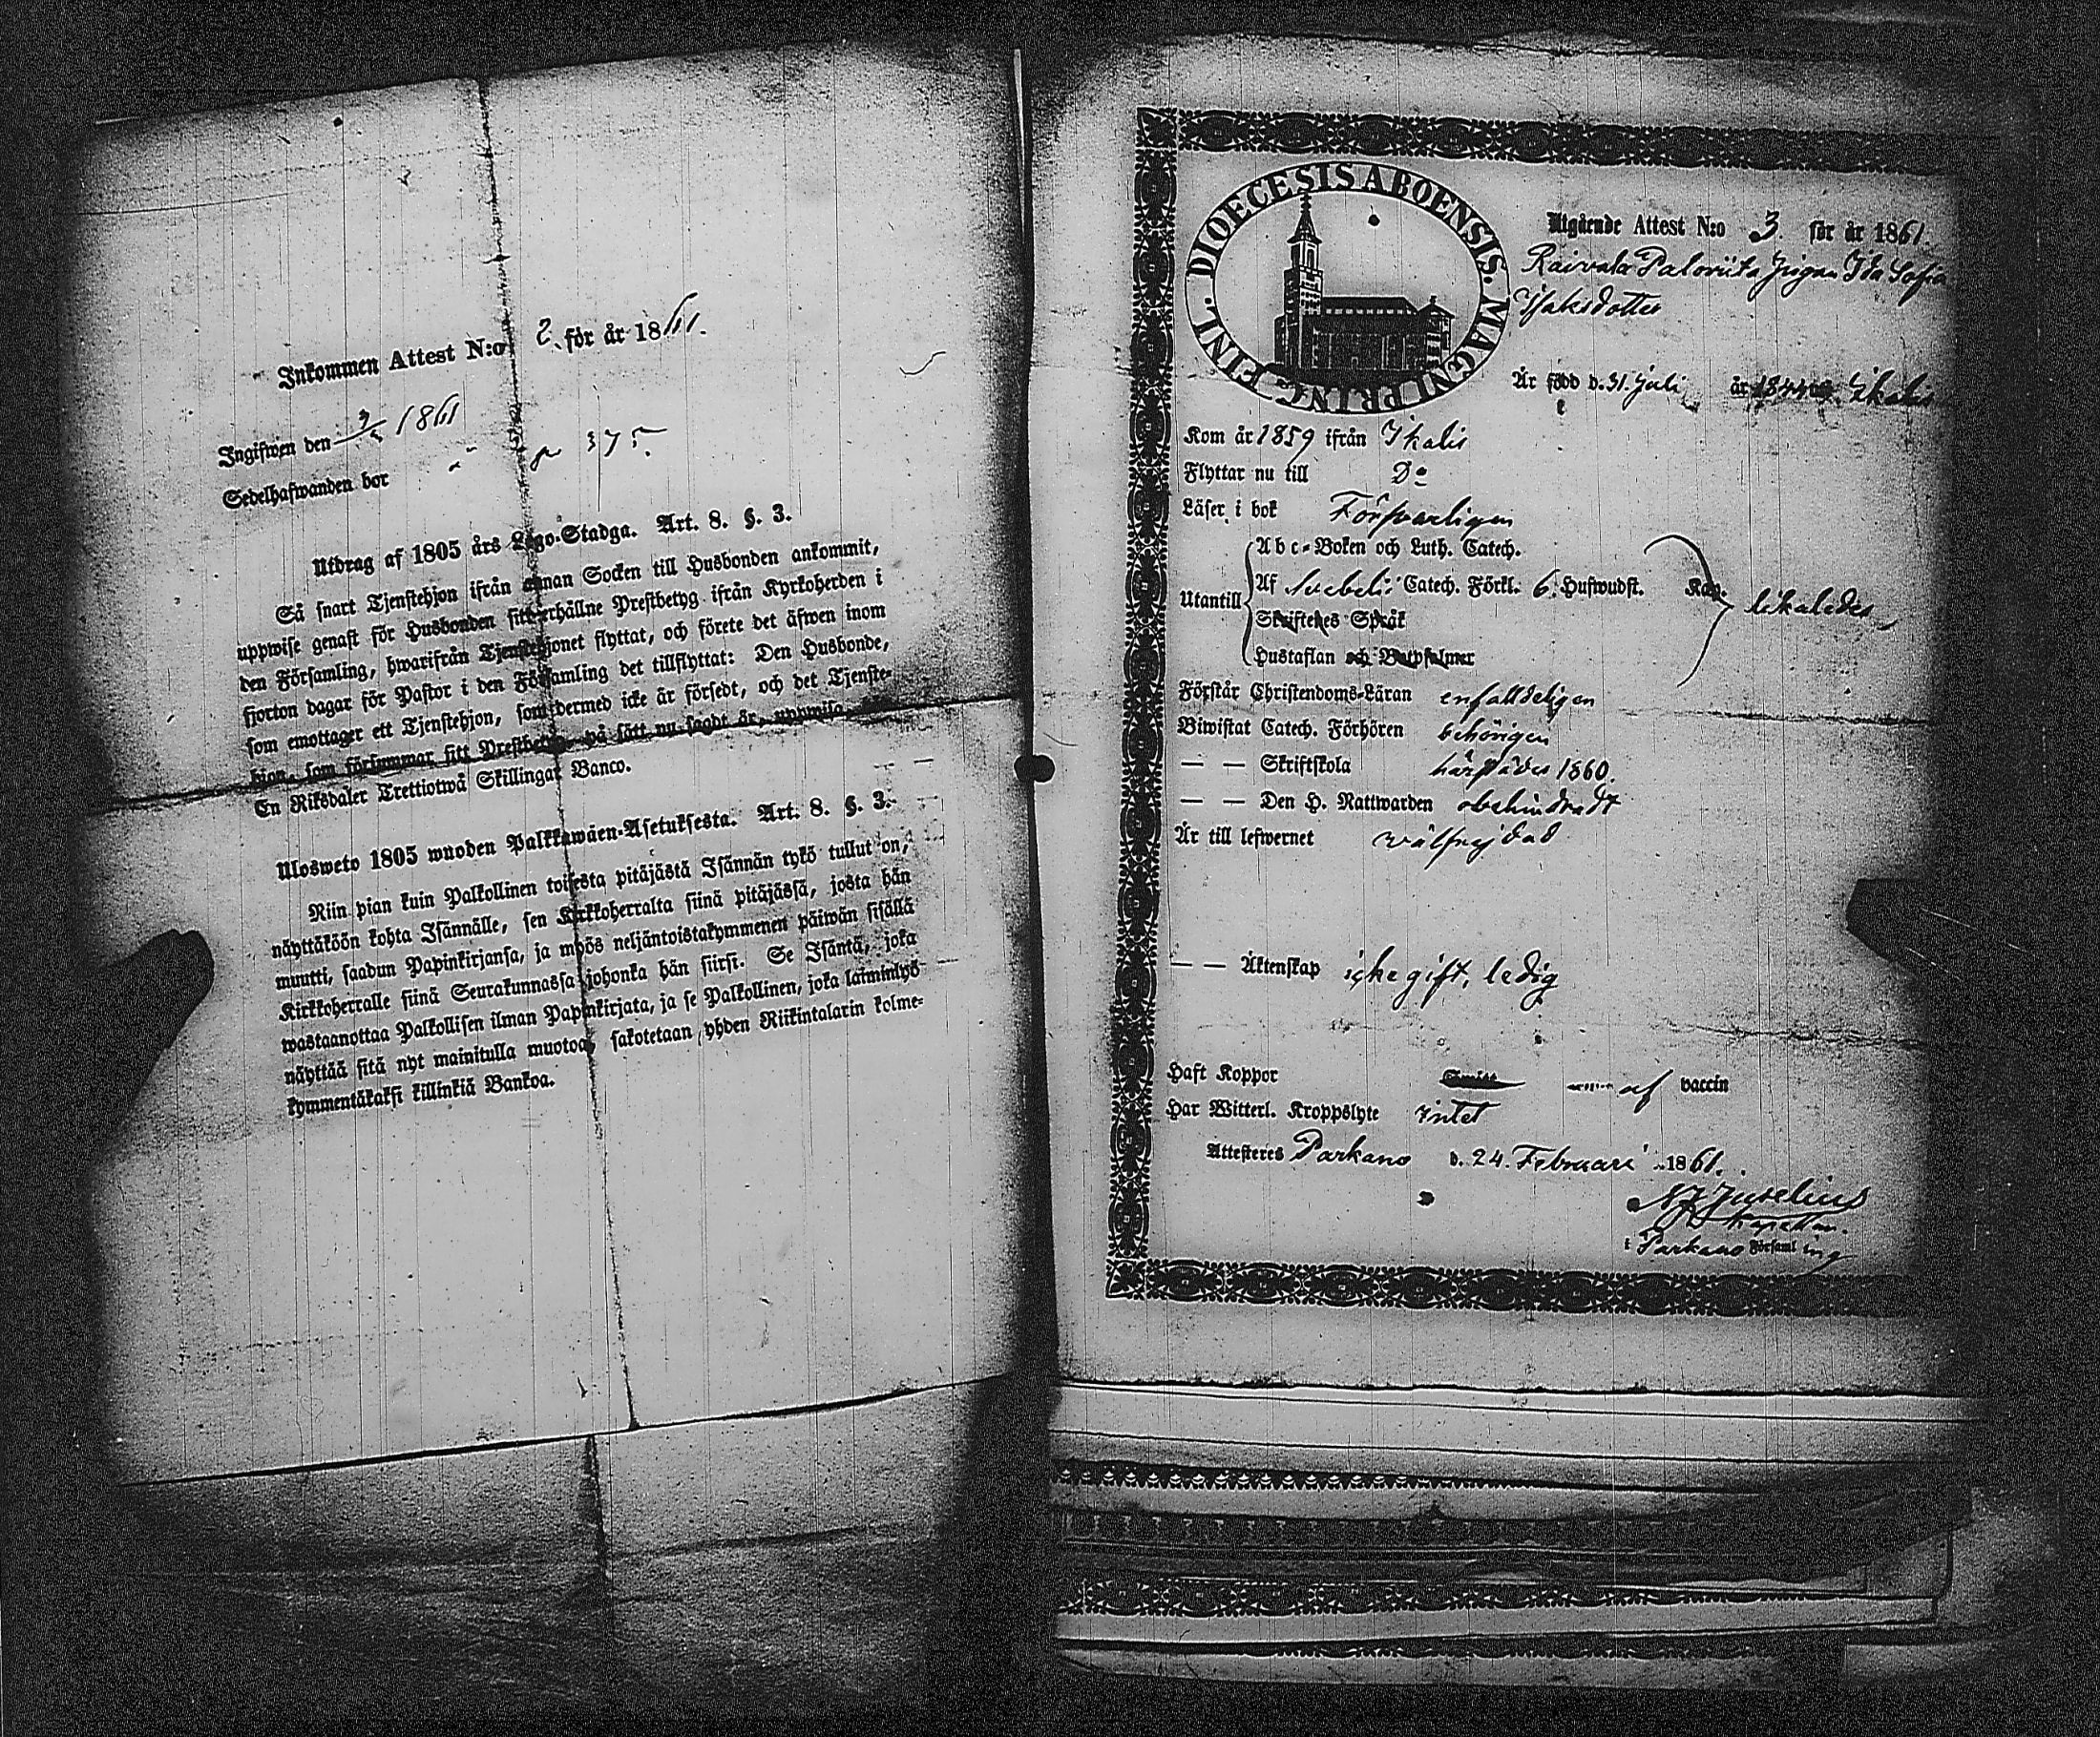 Inkommen Attest N:o 2. för år 1861.
Ingifwen den 1861
Sedelhafwanden bor 375
Utdrag af 1805 års Lego-Stadga. Art. 8. §. 3.
Så snart Tjenstehjon ifrån annan Socken till Husbonden ankommit,
uppwise genast för Husbonden sitt erhållne Prestbetyg ifrån Kyrkoherden i
den Församling, hwarifrån Tjenstehjonet flyttat, och förete det äfwen inom
fjorton dagar för Pastor i den Församling det tillflyttat: Den Husbonde,
som emottager ett Tjenstehjon, som dermed icke är försedt, och det Tjenste-
hjon, som försummar sitt Prestbetyg på sätt nu sagdt är, uppwisa
En Riksdaler Trettiotwå Skillingar Banco.
Ulosweto 1805 wuoden Palkkawäen-Asetuksesta. Art. 8. §. 3.
Niin pian kuin Palkollinen toisesta pitäjästä Isännän tykö tullut on,
näyttäköön kohta Isännälle, sen Kirkkoherralta siinä pitäjässä, josta hän
muutti, saadun Papinkirjansa, ja myös neljäntoistakymmenen päiwän sisällä
Kirkkoherralle siinä Seurakunnassa johonka hän siirsi. Se Isäntä, joka
wastaanottaa Palkollisen ilman Papinkirjata, ja se Palkollinen, joka laiminlyö
näyttää sitä nyt mainitulla muotoa, sakotetaan yhden Riikintalarin kolme-
kymmentäkaksi killinkiä Bankoa.
DIOECESIS ABOENSIS. MAGNI PRINC. FINL.
Utgående Attest N:o 3. för år 1861.
Raivala Paloviita Pigan Ida Sofia
Isaksdotter
Är född d. 31. Juli år 1844 Ikalis
Kom år 1859 ifrån Ikalis
Flyttar nu till Do
Läser i bok Förswarligen
Abc-Boken och Luth. Catech.
Utantill
Af Svebeli: Catech. Förkl. 6. Hufwudst. Kap. likaledes
Skriftenes Språk
Hustaflan och Botpsalmer
Förstår Christendoms-Läran enfalldeligen
Biwistat Catech. Förhören behörigen
— — Skriftskola härstädes 1860.
— — Den H. Nattwarden obehindradt
Är till lefwernet wälfrejdad
— — Äktenskap icke gift, ledig
Haft Koppor af vaccin
Har Witterl. Kroppslyte intet
Attesteres Parkano d. 24. Februari 1861.
N J Juselius
Kapellan.
i Parkano Församling